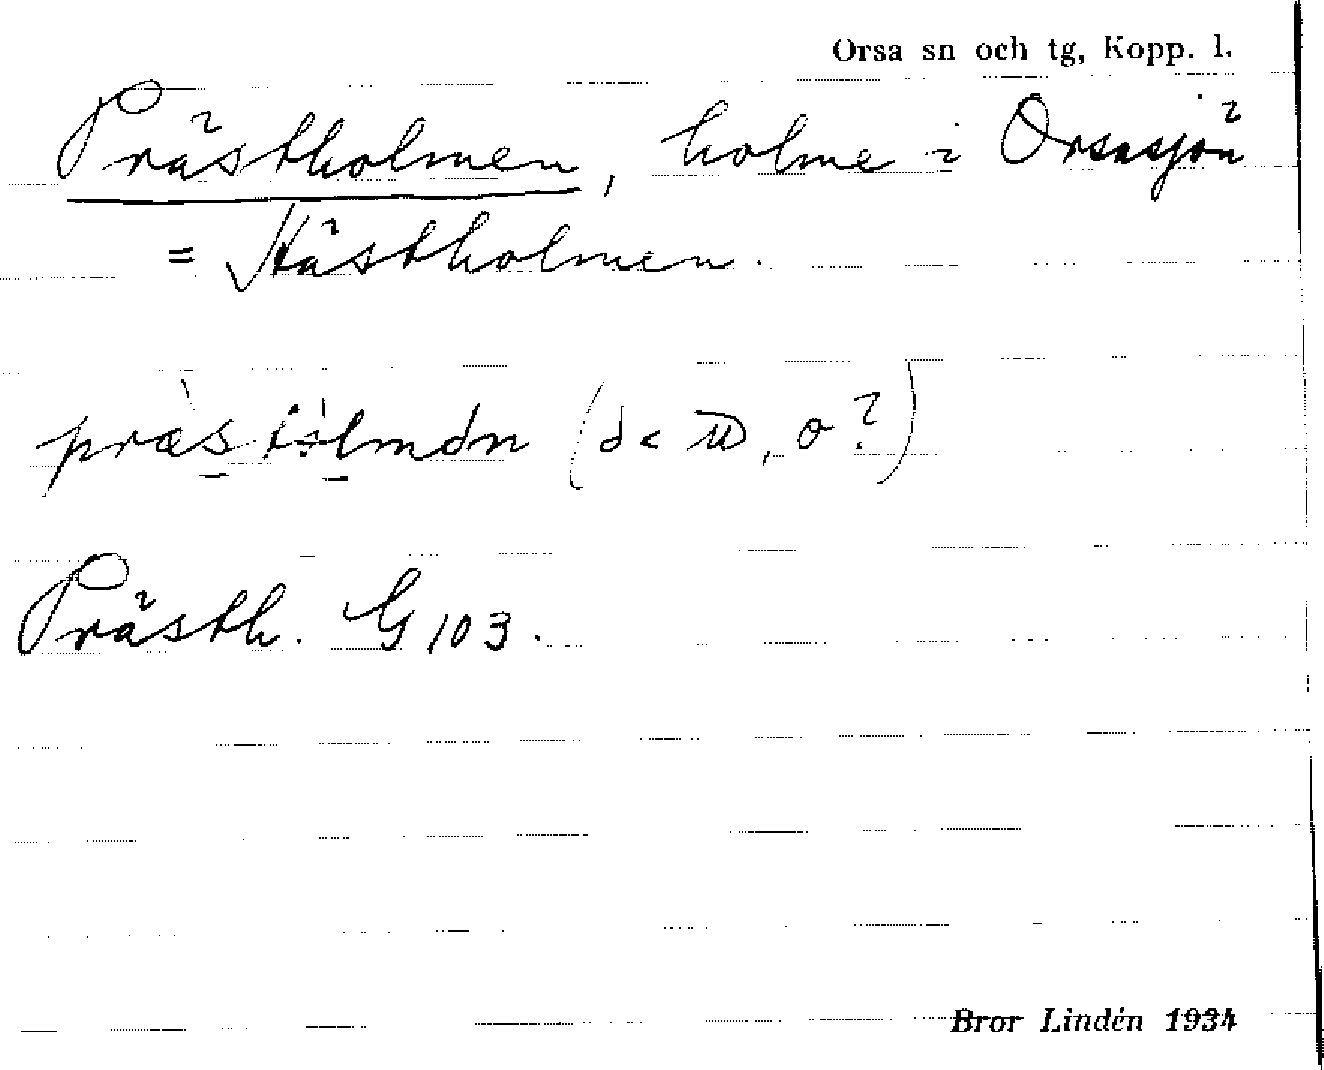 Orsa sn och tg, Kopp. l.
Prästholmen, holme i Orsasjön
= Hästholmen.
(d < , o?)
Prästh. G 103.
Bror Lindén 1934